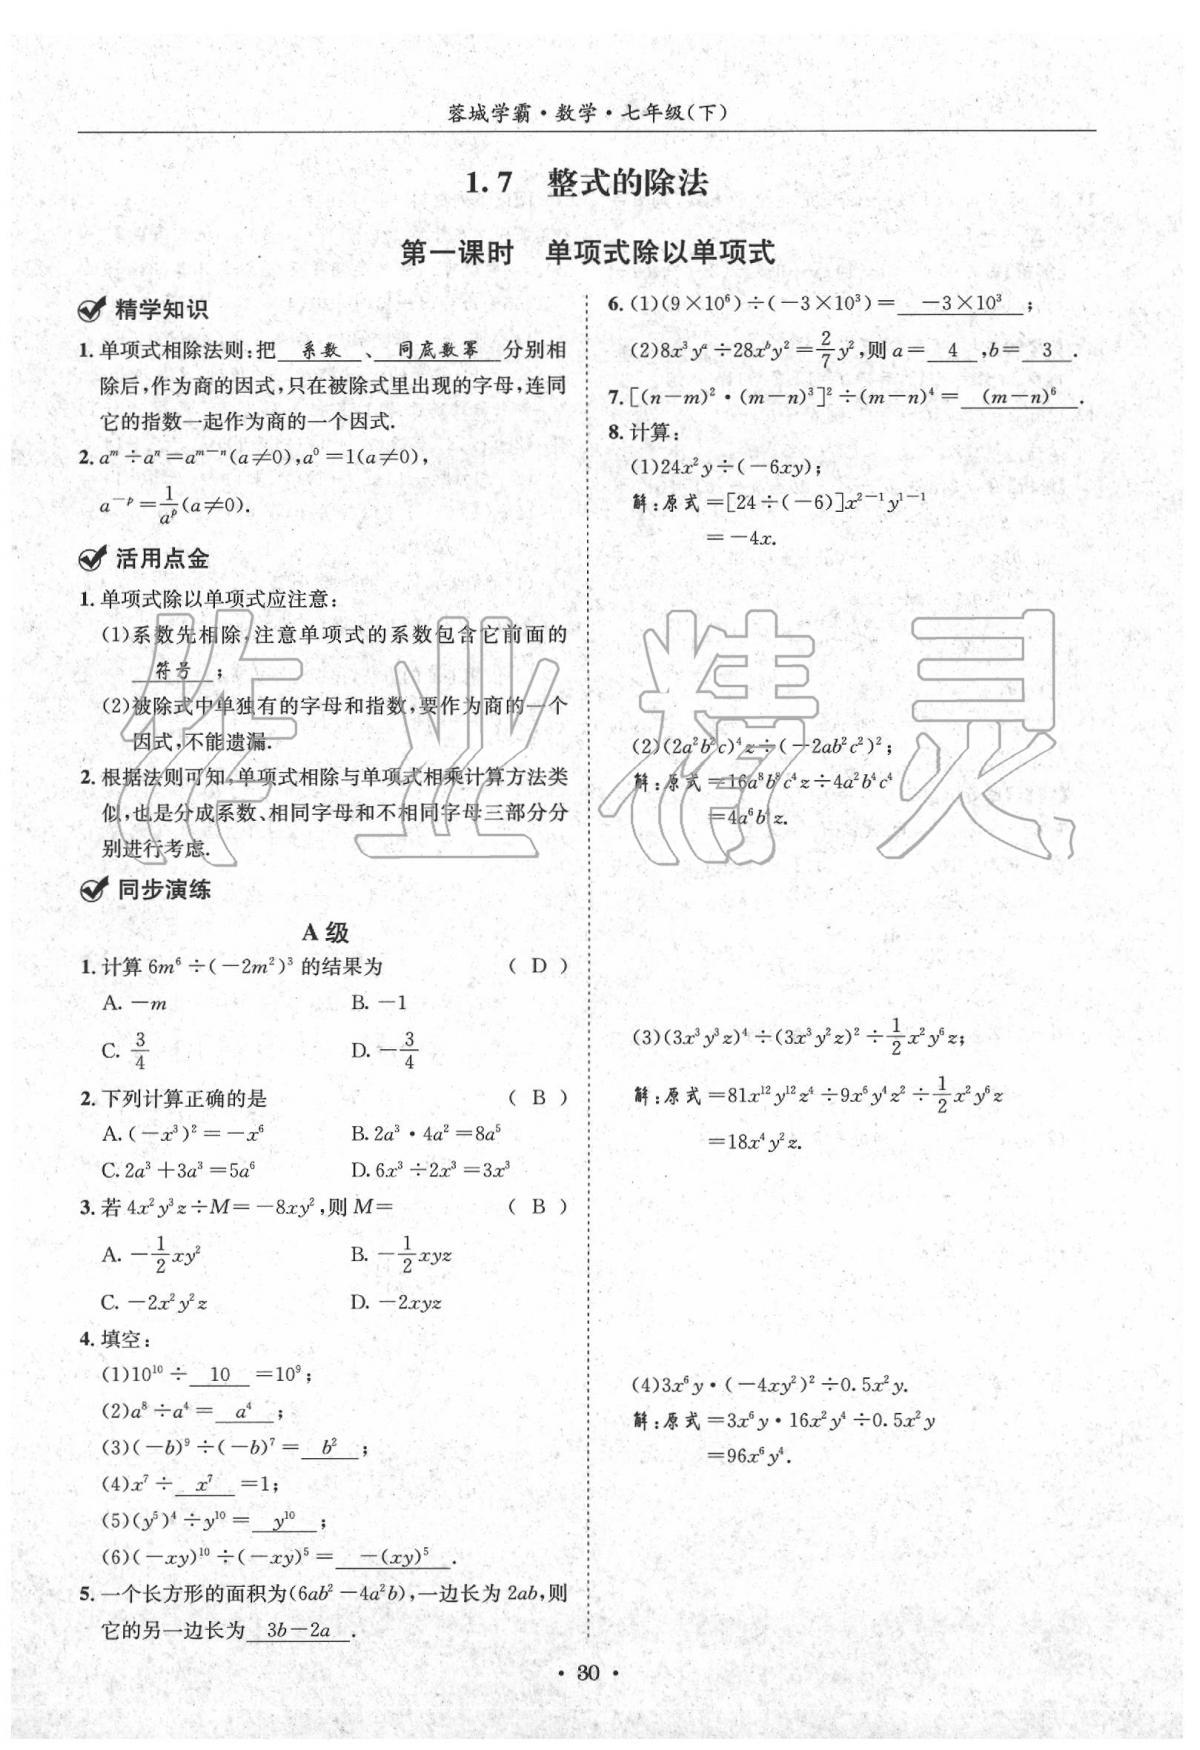 蓉城学霸·数学·七年级(下)
1.7 整式的除法
第一课时 单项式除以单项式
精学知识
1. 单项式相除法则:把 系数 、 同底数幂 分别相
除后,作为商的因式,只在被除式里出现的字母,连同
它的指数一起作为商的一个因式.
2. aᵐ÷aⁿ=aᵐ⁻ⁿ(a≠0),a⁰=1(a≠0),
a⁻ᵖ=1/aᵖ(a≠0).
活用点金
1. 单项式除以单项式应注意:
(1)系数先相除,注意单项式的系数包含它前面的
符号 ;
(2)被除式中单独有的字母和指数,要作为商的一个
因式,不能遗漏.
2. 根据法则可知,单项式相除与单项式相乘计算方法类
似,也是分成系数、相同字母和不相同字母三部分分
别进行考虑.
同步演练
A级
1. 计算 6m⁶÷(-2m²)³ 的结果为 ( D )
A. -m B. -1
C. 3/4 D. -3/4
2. 下列计算正确的是 ( B )
A. (-x³)²=-x⁶ B. 2a³·4a²=8a⁵
C. 2a³+3a³=5a⁶ D. 6x³÷2x³=3x³
3. 若 4x²y³z÷M=-8xy²,则 M= ( B )
A. -1/2xy² B. -1/2xyz
C. -2x²y²z D. -2xyz
4. 填空:
(1)10¹⁰÷ 10 =10⁹;
(2)a⁸÷a⁴= a⁴ ;
(3)(-b)⁹÷(-b)⁷= b² ;
(4)x⁷÷ x⁷ =1;
(5)(y⁵)⁴÷y¹⁰= y¹⁰ ;
(6)(-xy)¹⁰÷(-xy)⁵= -(xy)⁵ .
5. 一个长方形的面积为(6ab²-4a²b),一边长为 2ab,则
它的另一边长为 3b-2a .
6. (1)(9×10⁶)÷(-3×10³)= -3×10³ ;
(2)8x³yᵃ÷28xᵇy²=2/7y²,则 a= 4 ,b= 3 .
7. [(n-m)²·(m-n)³]²÷(m-n)⁴= (m-n)⁶ .
8. 计算:
(1)24x²y÷(-6xy);
解:原式=[24÷(-6)]x²⁻¹y¹⁻¹
=-4x.
(2)(2a²b²c)⁴z÷(-2ab²c²)²;
解:原式=16a⁸b⁸c⁴z÷4a²b⁴c⁴
=4a⁶b⁴z.
(3)(3x³y³z)⁴÷(3x³y²z)²÷1/2x²y⁶z;
解:原式=81x¹²y¹²z⁴÷9x⁶y⁴z²÷1/2x²y⁶z
=18x⁴y²z.
(4)3x⁶y·(-4xy²)²÷0.5x²y.
解:原式=3x⁶y·16x²y⁴÷0.5x²y
=96x⁶y⁴.
作业精灵
· 30 ·